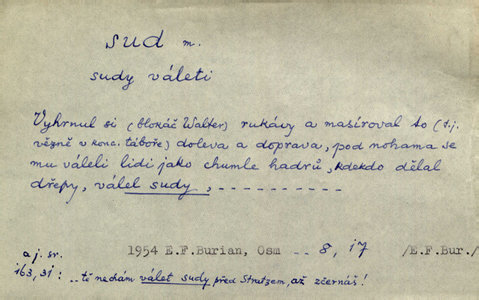 sud m.
sudy váleti
Vyhrnul si (blokáč Walter) rukávy a masíroval to (t.j.
vězně v konc. táboře) doleva a doprava, pod nohama se
mu váleli lidi jako chumle hadrů, kdekdo dělal
dřepy, válel sudy, - - - - - - - - - -
1954 E.F.Burian, Osm .. 8, 17 /E.F.Bur./
a j. sr.
163,31: .. tě nechám válet sudy před Strutzem, až zčernáš!